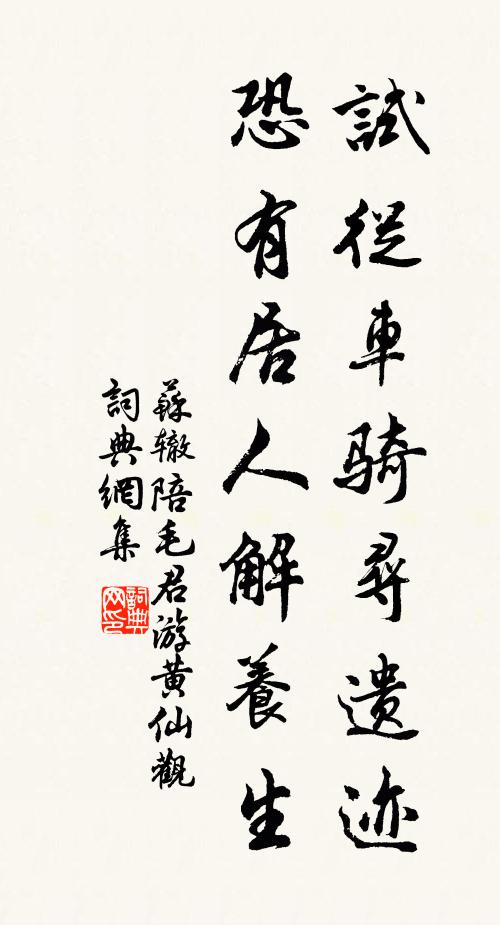 試從車騎尋遺迹
恐有居人解養生
蘇轍陪毛君游黄仙觀
詞典網集
詞典网印